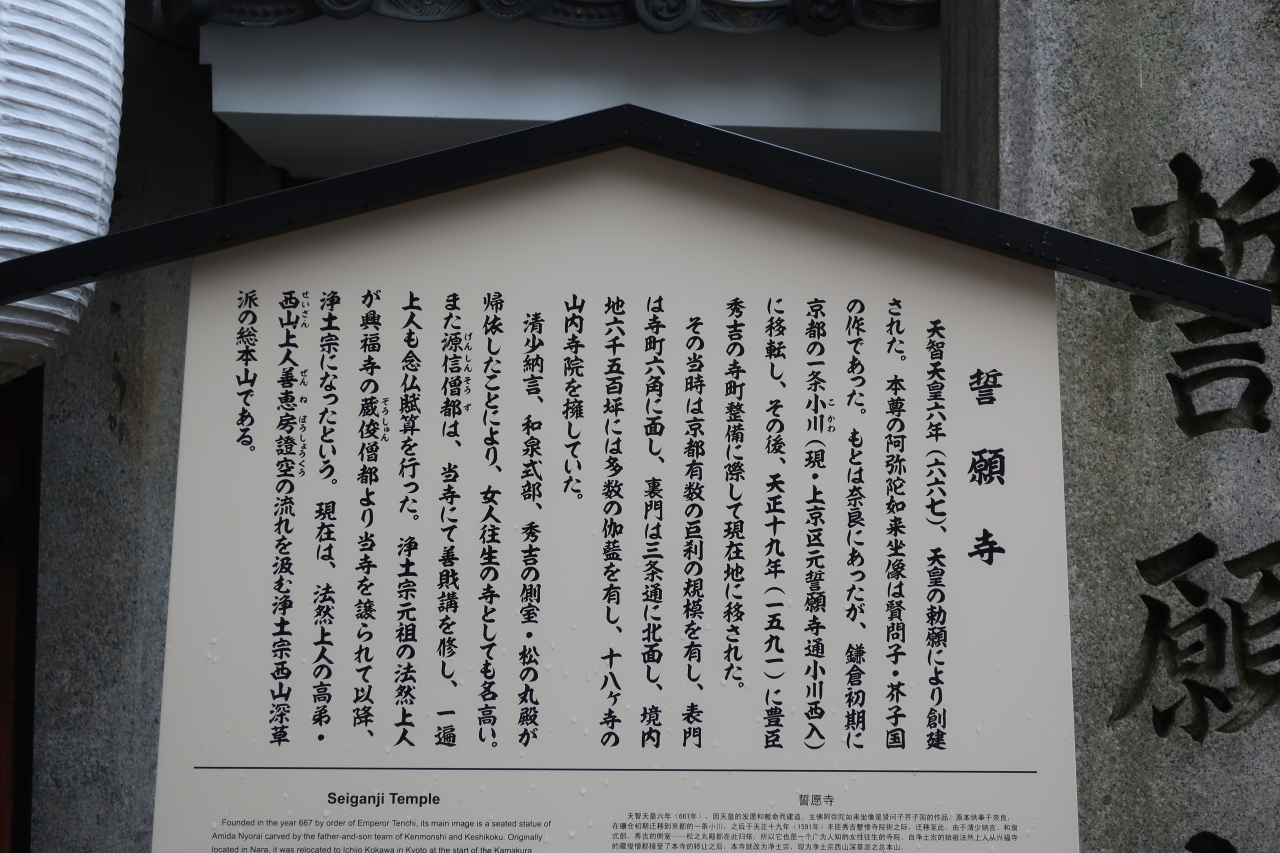 誓願寺
天智天皇六年（六六七）、天皇の勅願により創建
された。本尊の阿弥陀如来坐像は賢問子・芥子国
の作であった。もとは奈良にあったが、鎌倉初期に
京都の一条小川（現・上京区元誓願寺通小川西入）
こかわ
に移転し、その後、天正十九年（一五九一）に豊臣
秀吉の寺町整備に際して現在地に移された。
その当時は京都有数の巨刹の規模を有し、表門
は寺町六角に面し、裏門は三条通に北面し、境内
地六千五百坪には多数の伽藍を有し、十八ヶ寺の
山内寺院を擁していた。
清少納言、和泉式部、秀吉の側室・松の丸殿が
帰依したことにより、女人往生の寺としても名高い。
また源信僧都は、当寺にて善財講を修し、一遍
げんしんそうず
上人も念仏賦算を行った。浄土宗元祖の法然上人
が興福寺の蔵俊僧都より当寺を譲られて以降、
ぞうしゅん
浄土宗になったという。現在は、法然上人の高弟・
西山上人善恵房證空の流れを汲む浄土宗西山深草
せいざん ぜんねぼうしょうくう
派の総本山である。
Seiganji Temple
Founded in the year 667 by order of Emperor Tenchi, its main image is a seated statue of
Amida Nyorai carved by the father-and-son team of Kenmonshi and Keshikoku. Originally
located in Nara, it was relocated to Ichijo Kokawa in Kyoto at the start of the Kamakura
誓愿寺
天智天皇六年（667年），因天皇的发愿和敕命而建造。主佛阿弥陀如来坐像是贤问子芥子国的作品；原本供奉于奈良，
在镰仓初期迁移到京都的一条小川，之后于天正十九年（1591年）丰臣秀吉整修寺院街之际，迁移至此。由于清少纳言、和泉
式部、秀吉的侧室——松之丸殿都在此归依，所以它也是一个广为人知的女性往生的寺院。自净土宗的始祖法然上人从兴福寺
的藏俊僧都接受了本寺的转让之后，本寺就改为净土宗，现为净土宗西山深草派之总本山。
誓願